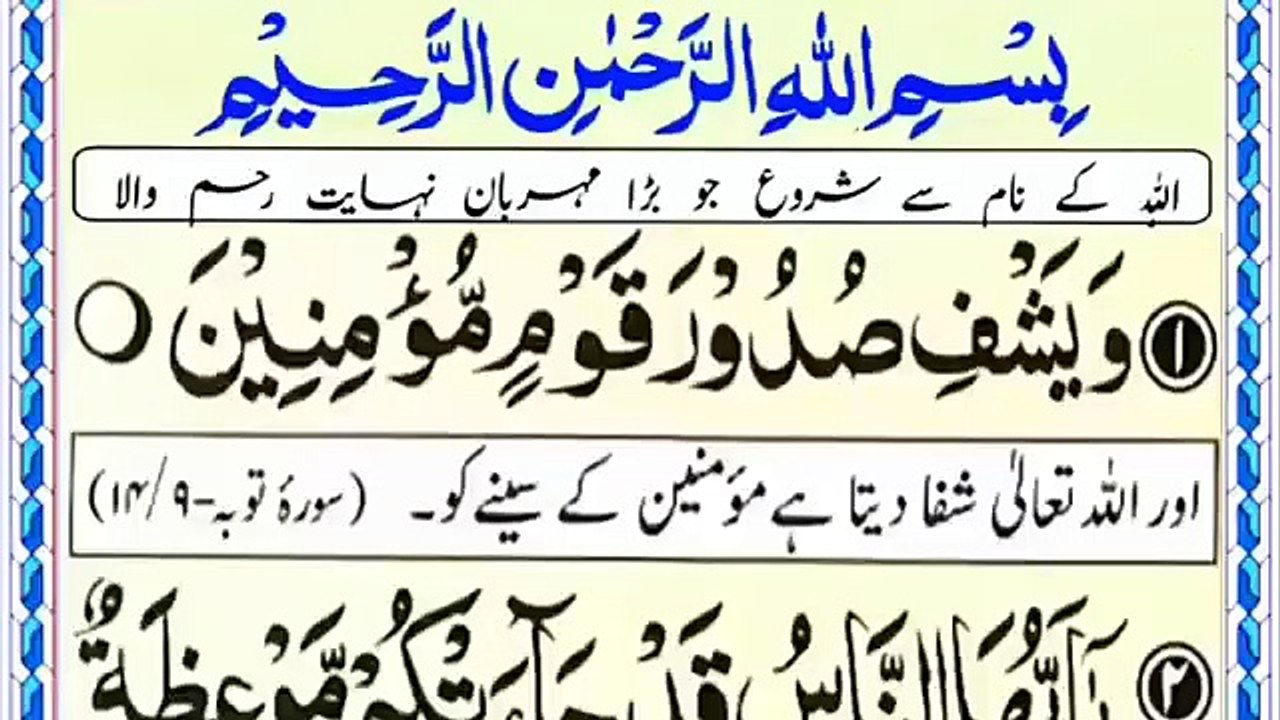 بِسْمِ اللهِ الرَّحْمٰنِ الرَّحِيْمِ
اللہ کے نام سے شروع جو بڑا مہربان نہایت رحم والا
١ وَيَشْفِ صُدُوْرَ قَوْمٍ مُّؤْمِنِيْنَ
اور اللہ تعالیٰ شفا دیتا ہے مؤمنین کے سینے کو۔ (سورۂ توبہ-۹/۱۴)
٢ يٰۤاَيُّهَا النَّاسُ قَدْ جَآءَتْكُمْ مَّوْعِظَةٌ